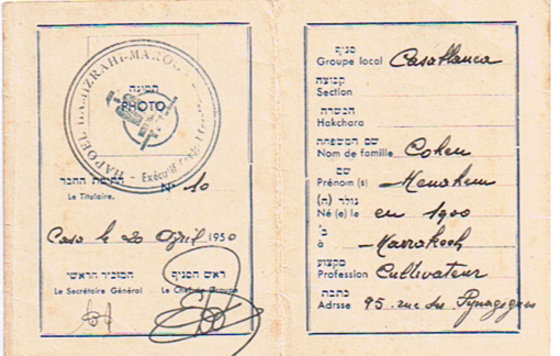 תמונה
PHOTO
HAPOEL HAMIZRAHI-MAROC
Exécutif
חתימת החבר
Le Titulaire,
N° 10
Casa le 20 April 1950
המזכיר הראשי
Le Secrétaire Général
ראש הסניף
Le Chef de Groupe
סניף
Groupe local Casablanca
קבוצה
Section
הכשרה
Hakchara
שם המשפחה
Nom de famille Cohen
שם
Prénom (s) Menahem
נולד (ה)
Né (e) le en 1900
ב'
à Marrakech
מקצוע
Profession Cultivateur
כתבה
Adrsse 95. rue des Synagogues